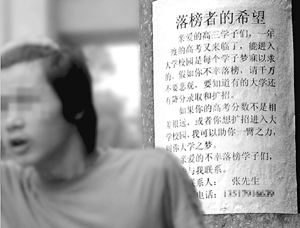 落榜者的希望
亲爱的高三学子们，一年
度的高考又来临了，能进入
大学校园是每个学子梦寐以求
的。假如你不幸落榜，请千万
不要悲观，要知道有的大学还
有降分录取和扩招。
如果你的高考分数不是相
差很远，或者你想扩招进入大
学校园，我可以助你一臂之力，
圆你大学之梦。
亲爱的不幸落榜学子们，
与我联系。
联系人： 张先生
电话：